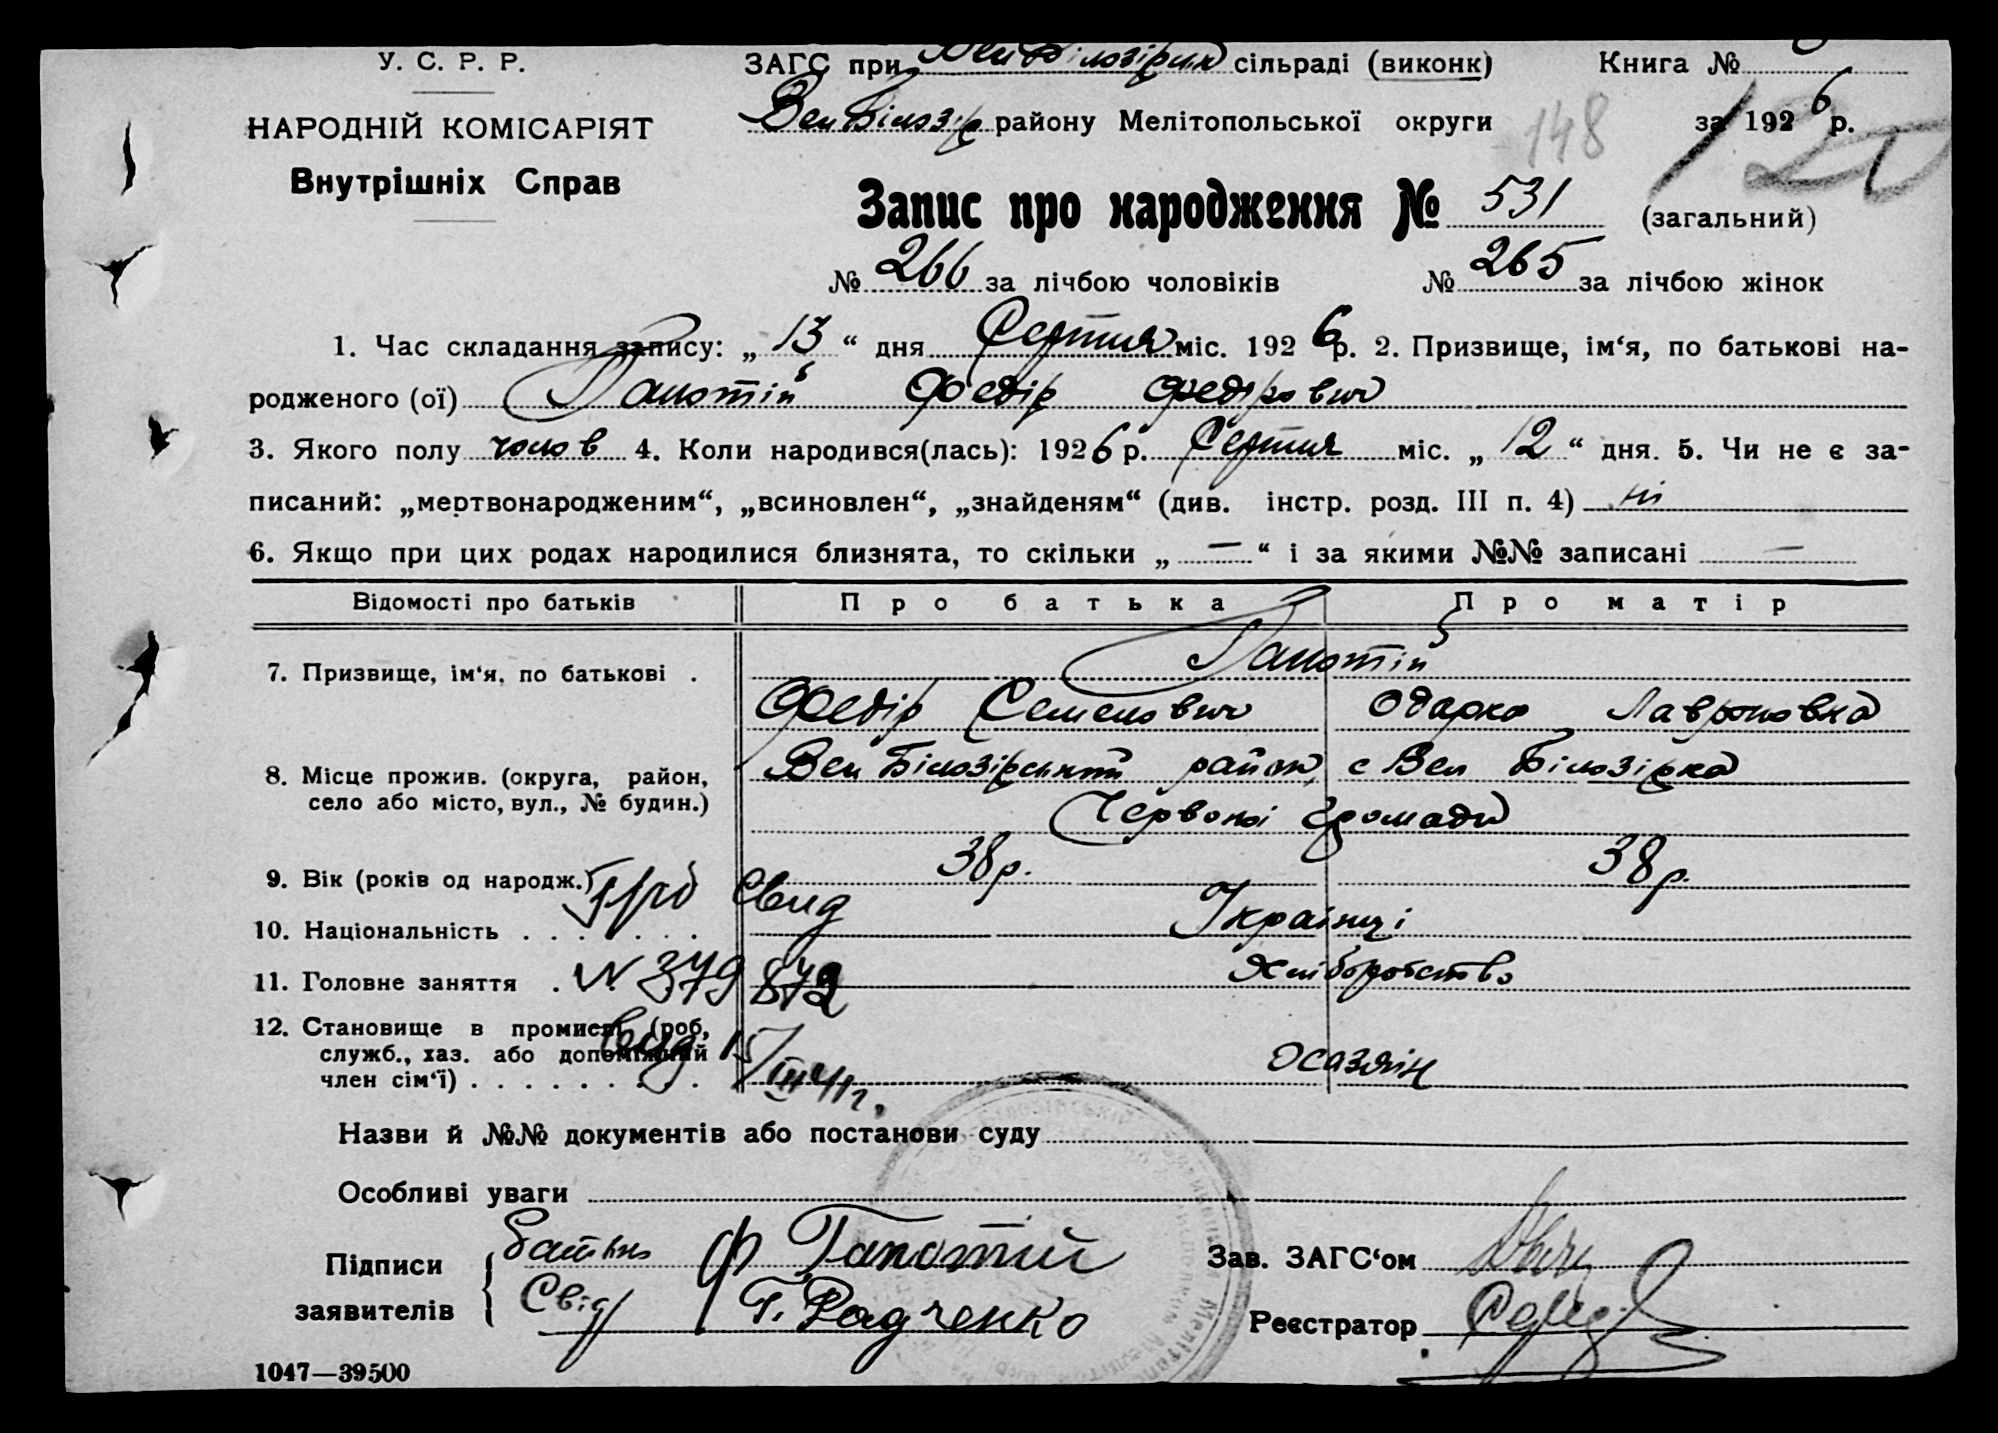 У. С. Р. Р.
ЗАГС при Вел Білозірці сільраді (виконк) Книга №
НАРОДНІЙ КОМІСАРІЯТ
Вел Білозір району Мелітопольської округи за 1926 р.
148 120
Внутрішніх Справ
Запис про народження № 531 (загальний)
№ 266 за лічбою чоловіків № 265 за лічбою жінок
1. Час складання запису: „ 13 “ дня Серпня міс. 1926 р. 2. Призвище, ім‘я, по батькові на-
родженого (ої) Гапотій Федір Федірович
3. Якого полу чолов 4. Коли народився(лась): 1926 р. Серпня міс. „ 12 “ дня. 5. Чи не є за-
писаний: „мертвонародженим“, „всиновлен“, „знайденям“ (див. інстр. розд. III п. 4) ні
6. Якщо при цих родах народилися близнята, то скільки „ — “ і за якими №№ записані —
Відомості про батьків Про батька Про матір
7. Призвище, ім‘я, по батькові . Гапотій
Федір Семенович Одарка Лавроновна
8. Місце прожив. (округа, район, Вел Білозірський район с Вел Білозірка
село або місто, вул., № будин.) Червоної Громади
9. Вік (років од народж.) 38 р. 38 р.
10. Національність Українці
11. Головне заняття Хліборобство
12. Становище в промислі (роб,
служб., хаз. або допоміжний
член сім‘ї)
№ 379 872
15/III 41 г.
Назви й №№ документів або постанови суду
Особливі уваги
Підписи Батько Ф Гапотій Зав. ЗАГС‘ом
заявителів Свід Г. Радченко Реєстратор
1047—39500